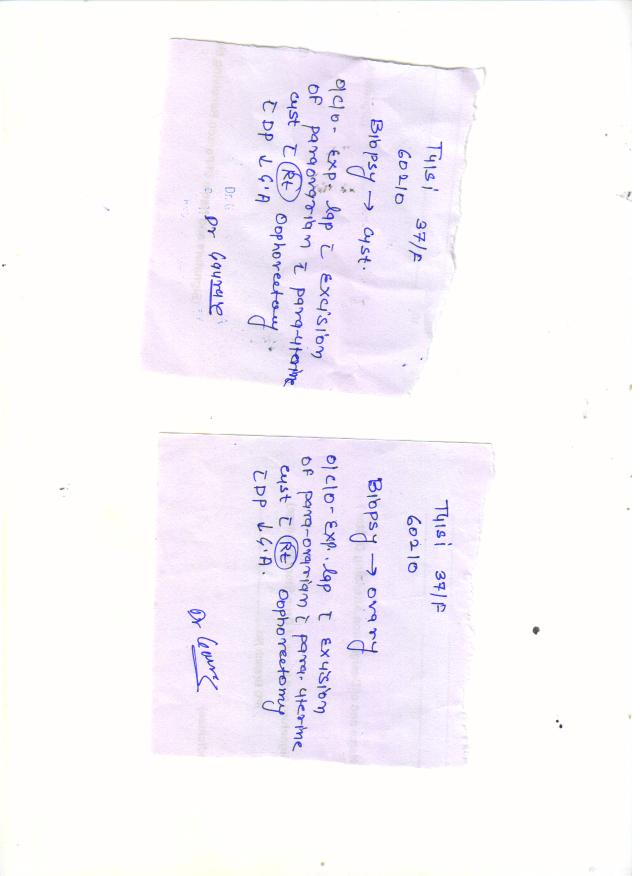 Tulsi 37/F
60210
Biopsy → Cyst.
O/C/O- Exp. lap c̄ Excision
of paraovarian c̄ para-uterine
cyst c̄ Rt Oophorectomy
c̄ DP ↓ G.A
Dr Gaurav
Tulsi 37/F
60210
Biopsy → ovary
O/C/O- Exp. lap c̄ Excision
of para-ovarian c̄ para-uterine
cyst c̄ Rt Oophorectomy
c̄ DP ↓ G.A.
Dr Gaurav